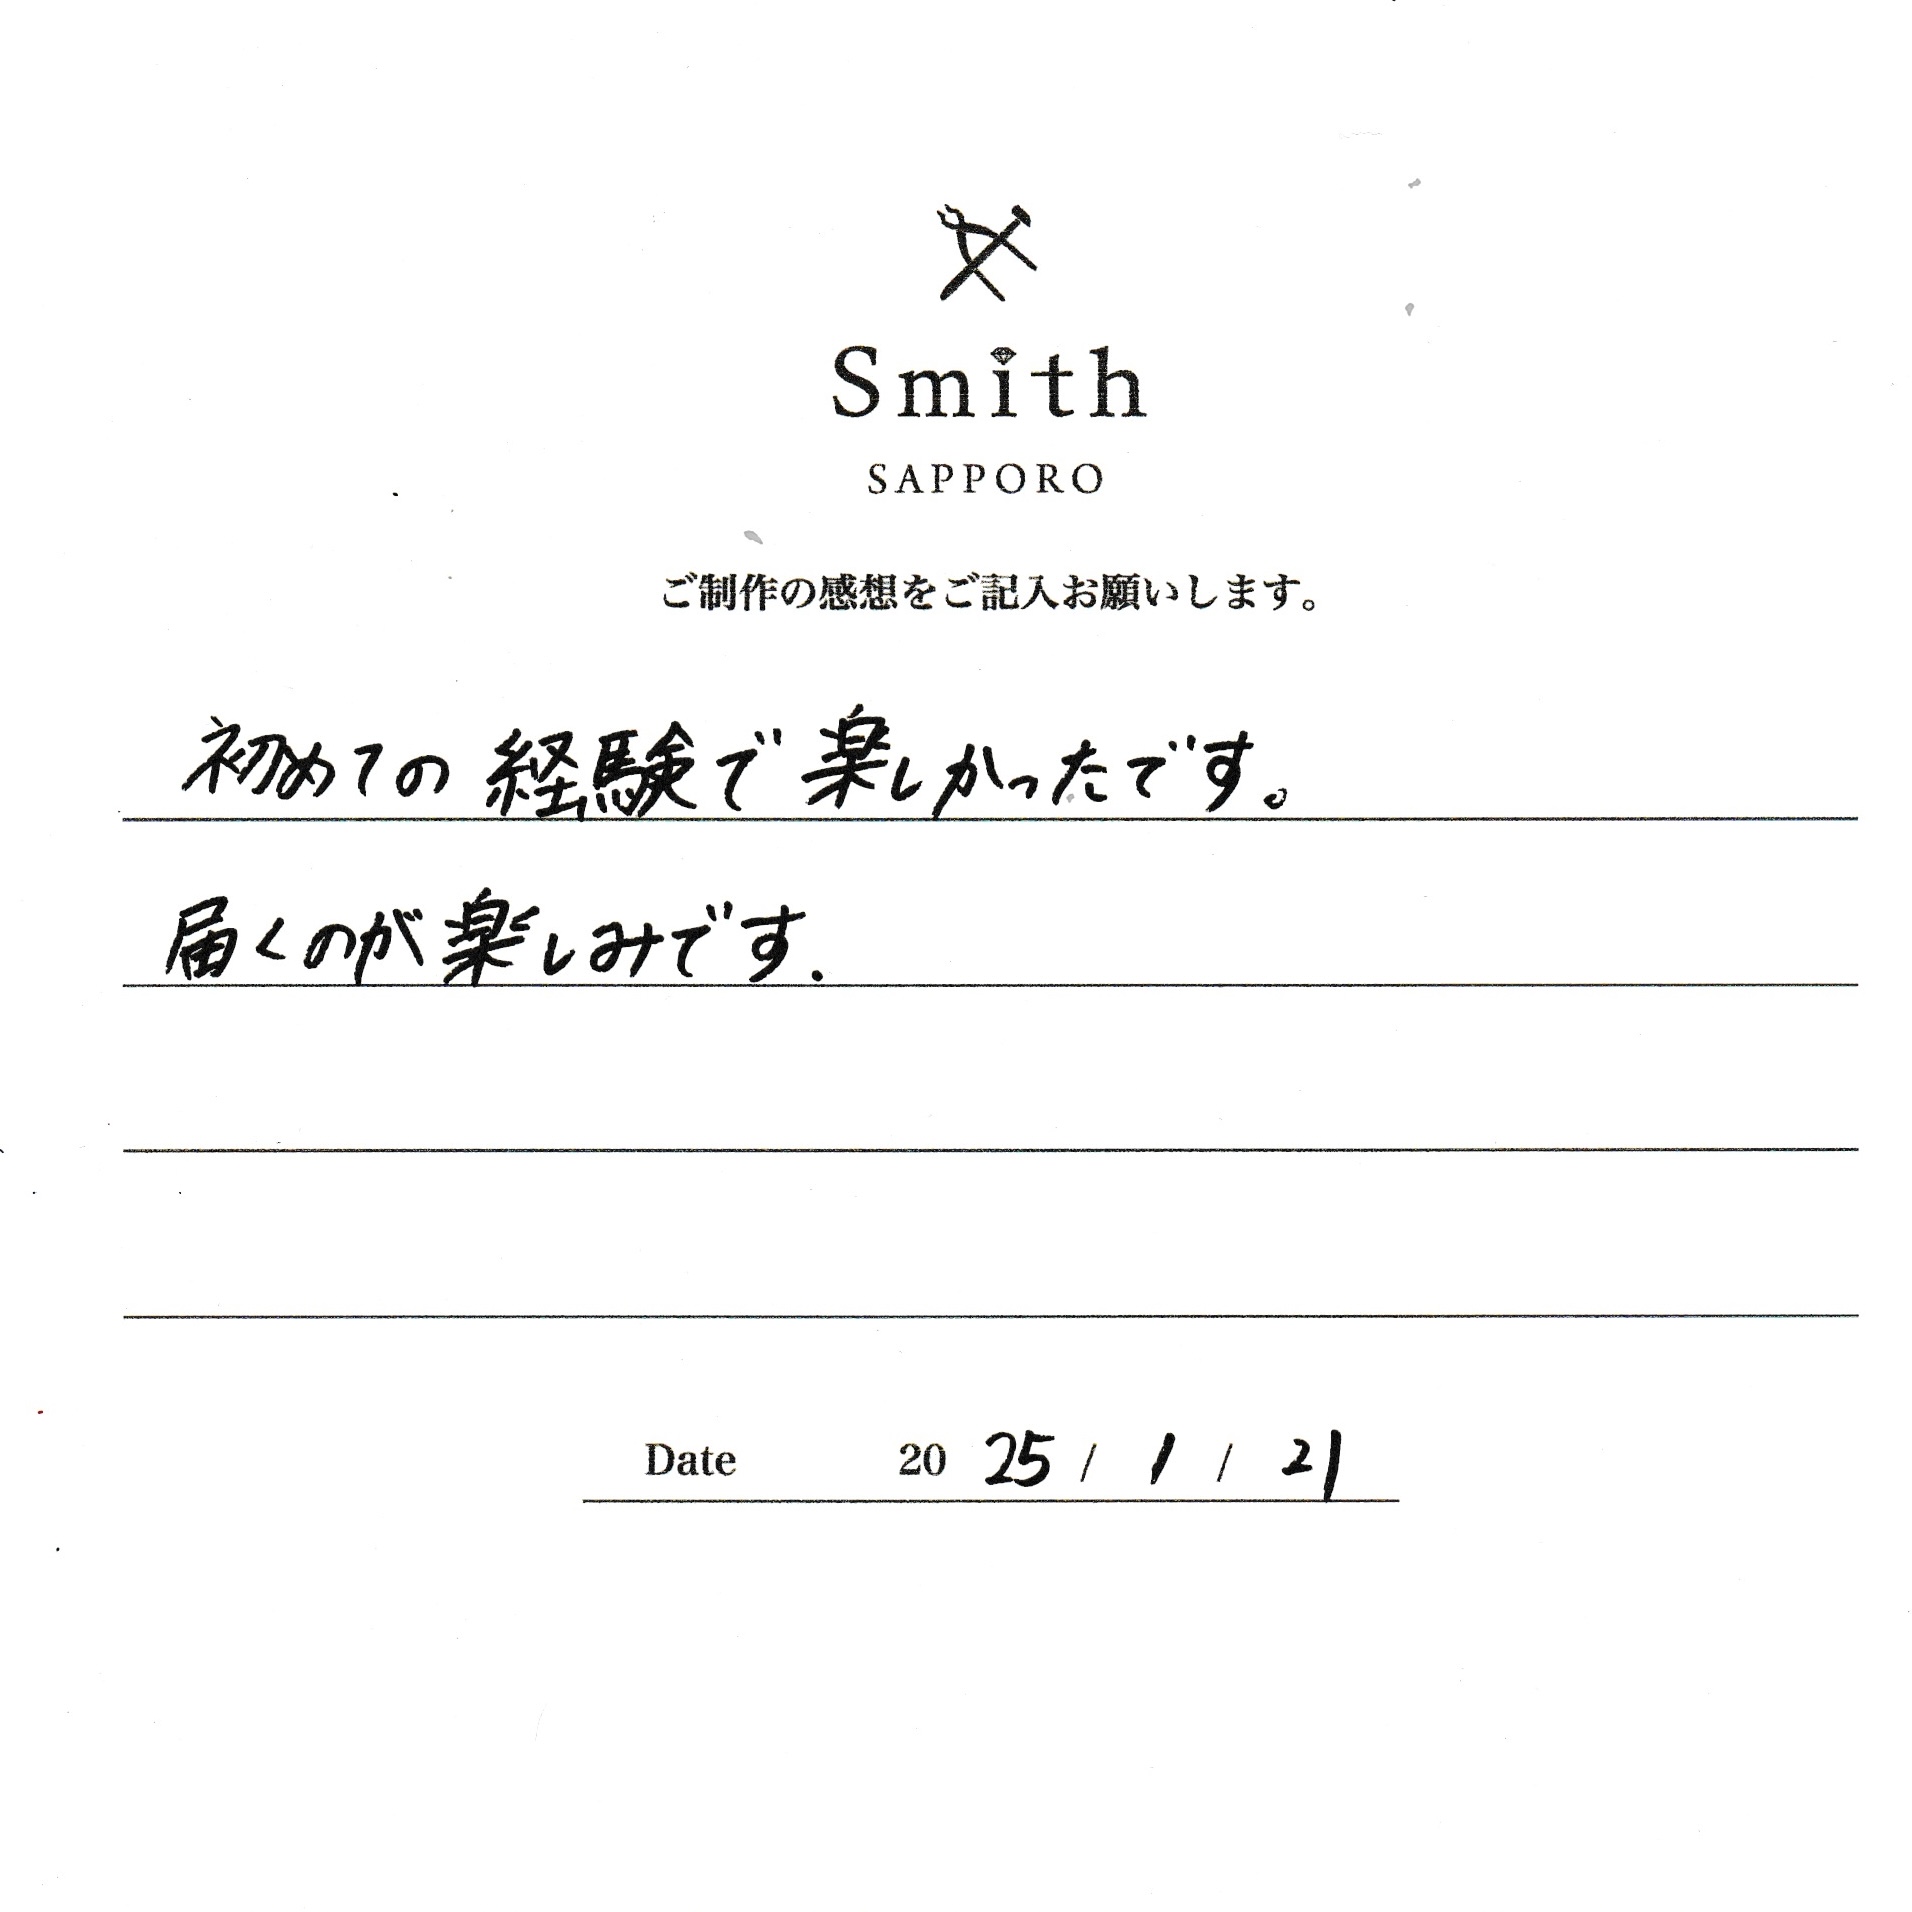 Smith
SAPPORO
ご制作の感想をご記入お願いします。
初めての経験で楽しかったです。
届くのが楽しみです.
Date 20 25 / 1 / 21